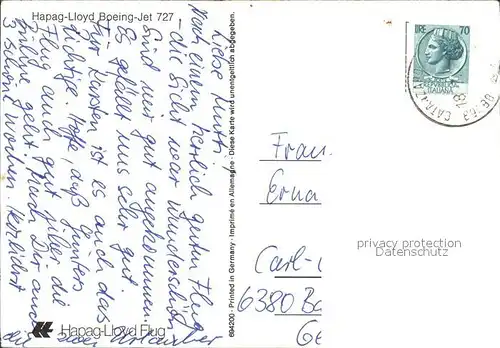 Hapag-Lloyd Boeing-Jet 727
Liebe Mutti,
nach einem herrlich guten Flug
- die Sicht war wunderschön -
sind wir gut angekommen.
Es gefällt uns sehr gut.
Für Karsten ist es auch das
richtige. Hoffe, daß Günters
Flug auch gut über die
Bühne geht. Nach Dir auch
3 schöne Wochen. Herzlichst
die Urlauber
Hapag-Lloyd Flug
694200 · Printed in Germany · Imprimé en Allemagne · Diese Karte wird unentgeltlich abgegeben.
LIRE 70
ITALIANA
CATANZAR
18
Frau
Erna
Carl-
6380 Ba
Ge
privacy protection
Datenschutz